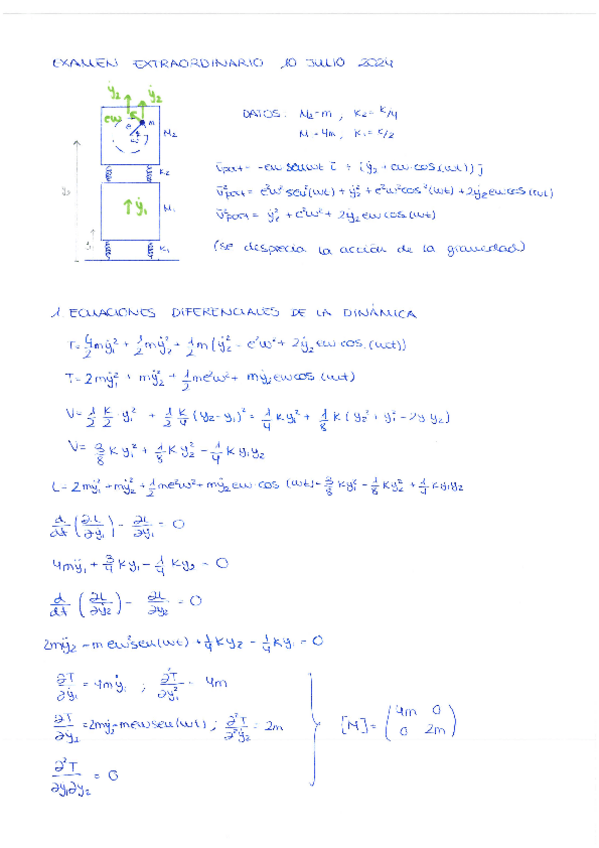 EXAMEN EXTRAORDINARIO 10 JULIO 2024
ẏ₂ ẏ₂
ew e m
M₂
K₂
ẏ₁ M₁
K₁
DATOS: M₂=m , K₂= K/4
M₁=4m, K₁= K/2
v̄part = -ew senwt ī + (ẏ₂ + ew cos(wt)) j̄
v̄²part = e²w² sen²(wt) + ẏ₂² + e²w²cos²(wt) + 2ẏ₂ew cos(wt)
v̄²part = ẏ₂² + e²w² + 2ẏ₂ ew cos(wt)
(se desprecia la acción de la gravedad)
1. ECUACIONES DIFERENCIALES DE LA DINÁMICA
T= 4/2 mẏ₁² + 1/2 mẏ₂² + 1/2 m (ẏ₂² + e²w² + 2ẏ₂ ew cos (wt))
T= 2mẏ₁² + mẏ₂² + 1/2 me²w² + mẏ₂ew cos (wt)
V= 1/2 K/2 y₁² + 1/2 K/4 (y₂-y₁)² = 1/4 Ky₁² + 1/8 K (y₂² + y₁² - 2y₁y₂)
V= 3/8 K y₁² + 1/8 K y₂² - 1/4 K y₁y₂
L= 2mẏ₁² + mẏ₂² + 1/2 me²w² + mẏ₂ ew cos (wt) - 3/8 Ky₁² - 1/8 Ky₂² + 1/4 Ky₁y₂
d/dt (∂L/∂ẏ₁) - ∂L/∂y₁ = 0
4mÿ₁ + 3/4 Ky₁ - 1/4 Ky₂ = 0
d/dt (∂L/∂ẏ₂) - ∂L/∂y₂ = 0
2mÿ₂ - m ew²sen(wt) + 1/4 Ky₂ - 1/4 Ky₁ = 0
∂T/∂ẏ₁ = 4mẏ₁ ; ∂²T/∂ẏ₁² = 4m
∂T/∂ẏ₂ = 2mẏ₂ - mewsen(wt) ; ∂²T/∂²ẏ₂ = 2m
[M] = (4m 0
0 2m)
∂²T/∂ẏ₁∂ẏ₂ = 0